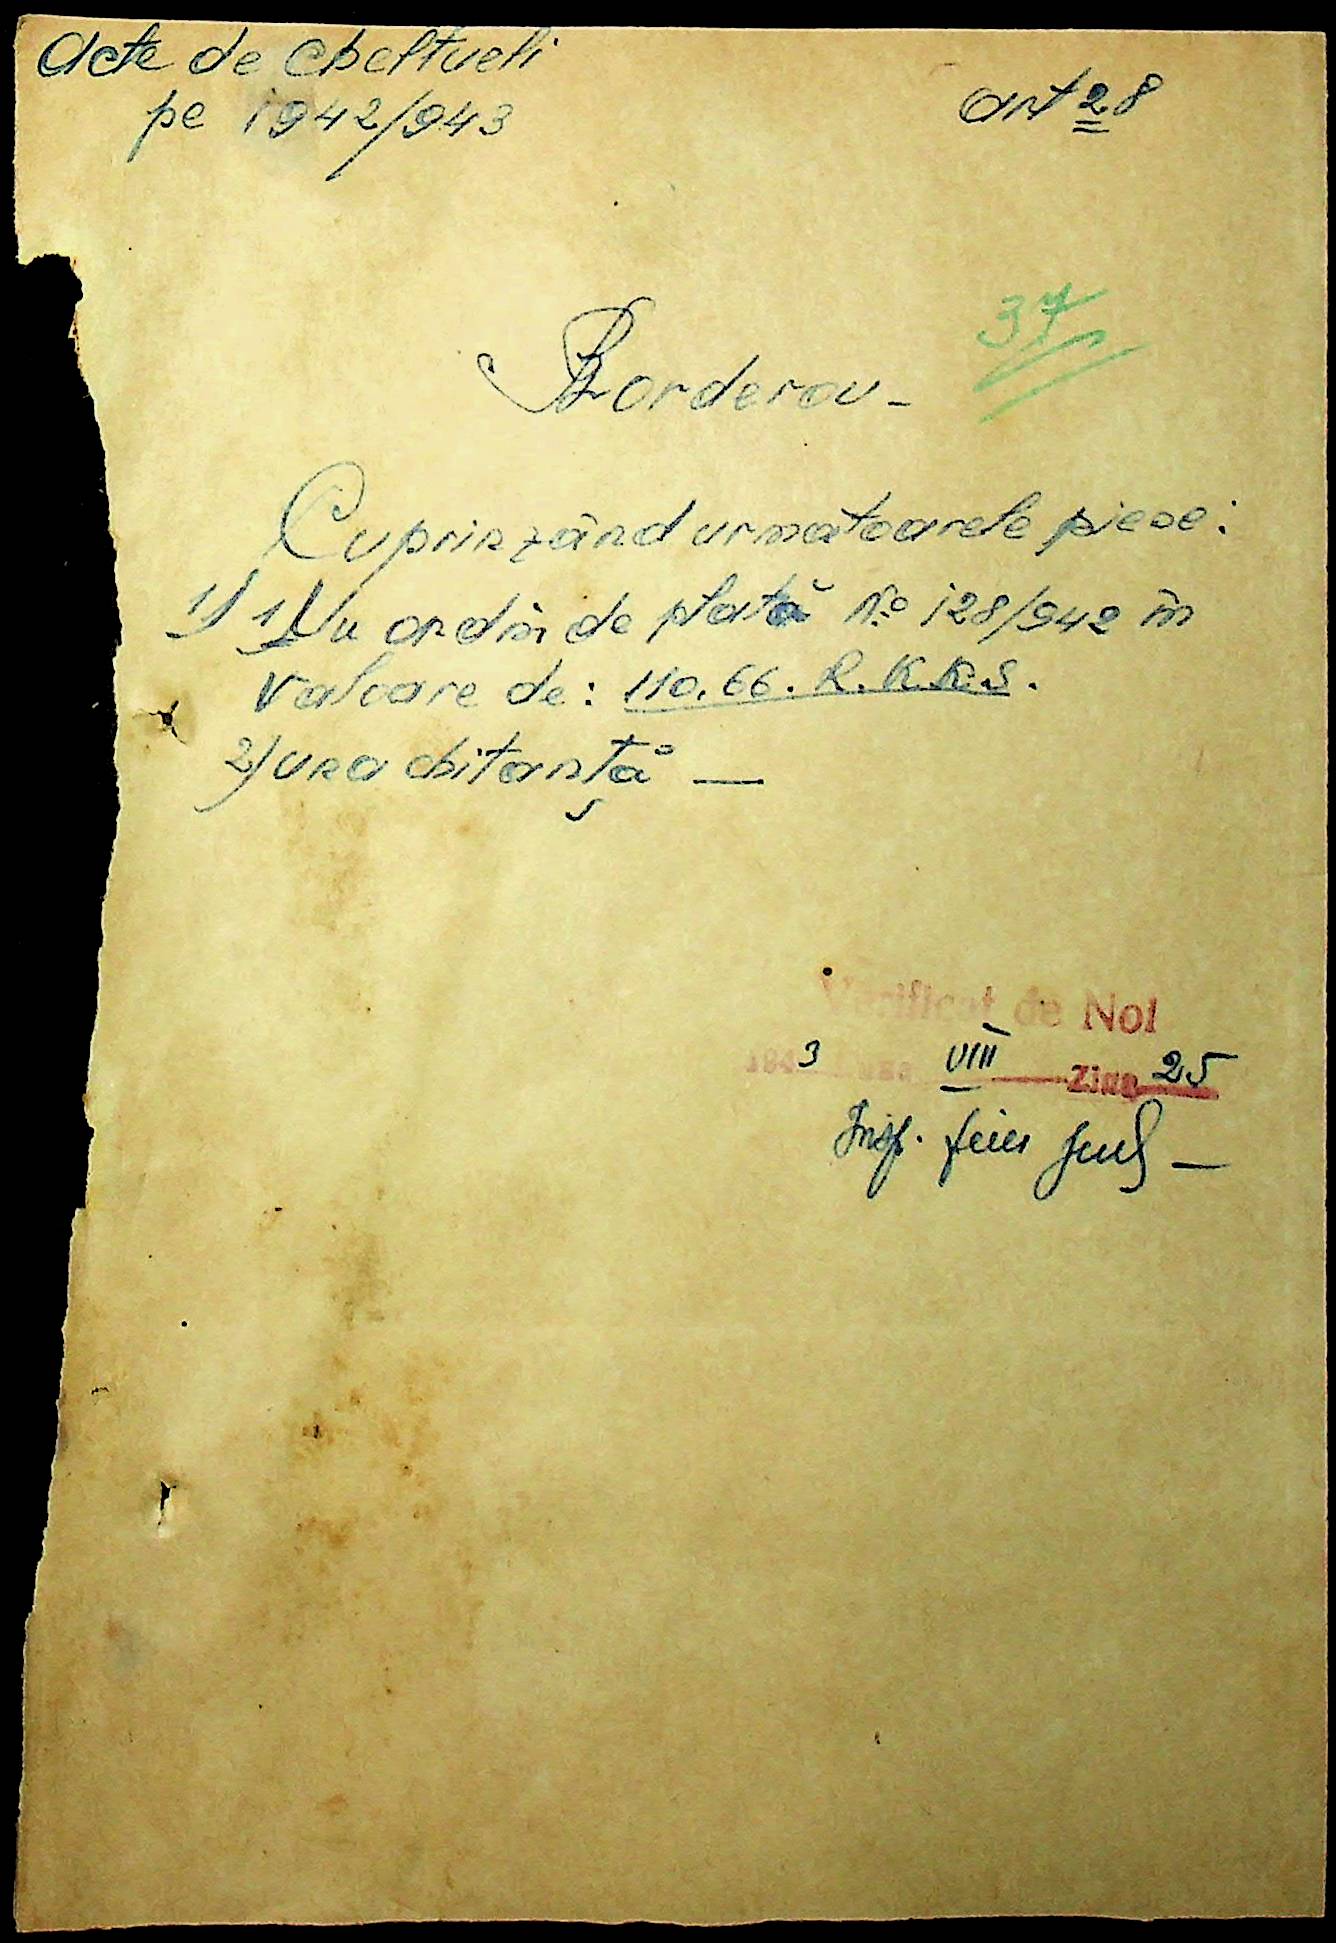 Acte de cheltueli
pe 1942/943
art 28
37
Borderou -
Cuprinzând urmatoarele piese:
1) Un ordin de plată No 128/942 în
valoare de: 110.66. R.K.K.S.
2) una chitanță —
Verificat de Noi
1943 Luna VIII Ziua 25
Insp.